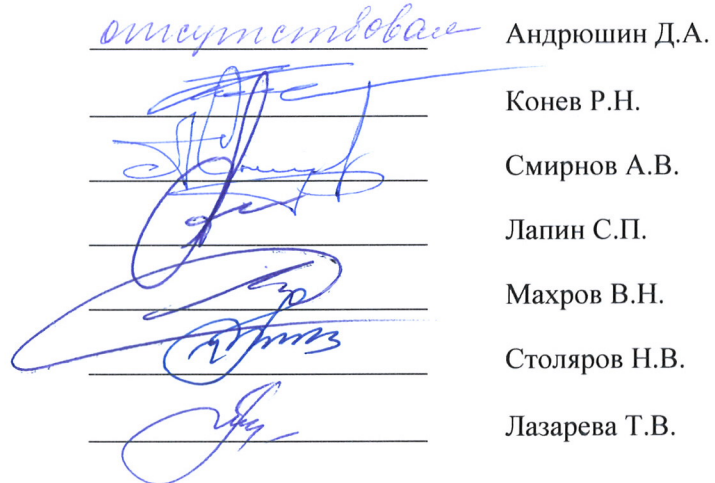 отсутствовал Андрюшин Д.А.
Конев Р.Н.
Смирнов А.В.
Лапин С.П.
Махров В.Н.
Столяров Н.В.
Лазарева Т.В.